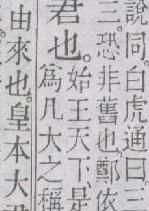 說同。白虎通曰。三
三。恐非舊也。鄭依
爲几大之稱
君也。始王天下。是
由來也。皇本大